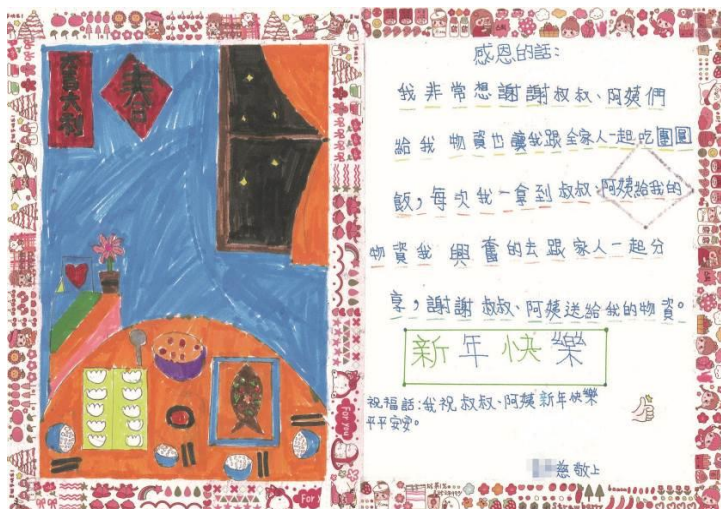 大吉大利
春
感恩的話:
我非常想謝謝叔叔、阿姨們
給我物資也讓我跟全家人一起吃團圓
飯,每次我一拿到叔叔、阿姨給我的
物資我興奮的去跟家人一起分
享,謝謝叔叔、阿姨送給我的物資。
新年快樂
祝福話:我祝叔叔、阿姨新年快樂
平平安安。
慈敬上
For you
For y
Strawberry